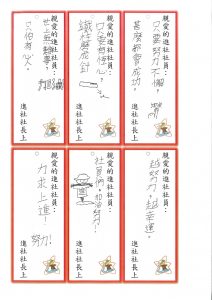 親愛的進社社員：
只要努力不懈，
甚麼都會成功。
進社社長上
親愛的進社社員：
只要有恆心，
鐵柱磨成針
進社社長上
親愛的進社社員：
世上無難事，
只怕有心人
進社社長上
親愛的進社社員：
越努力，越幸運。
進社社長上
親愛的進社社員：
社員們，加油努力！
進社社長上
親愛的進社社員：
力求上進！
努力！
進社社長上